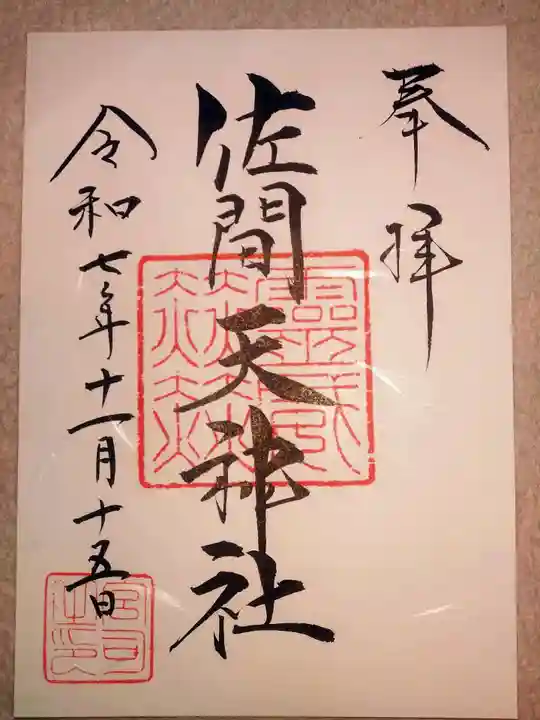 奉拝
佐間天神社
令和七年十一月十五日